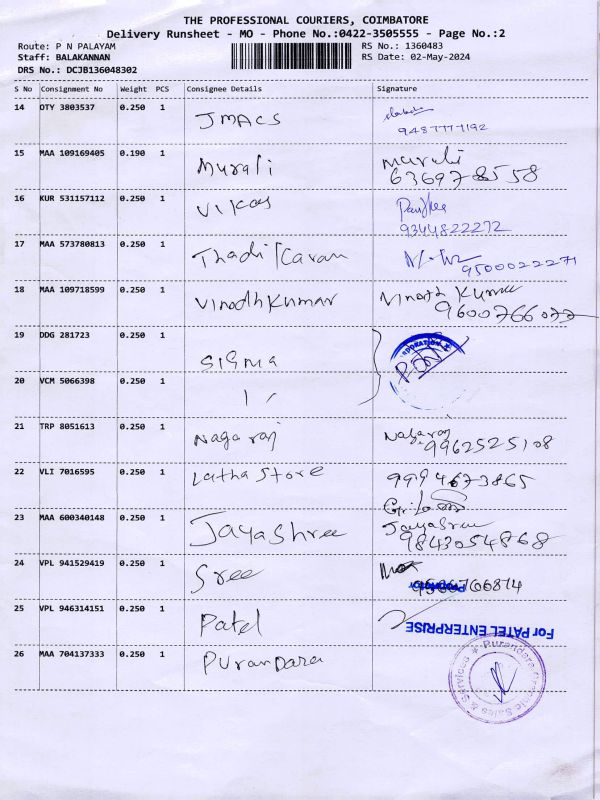 THE PROFESSIONAL COURIERS, COIMBATORE
Delivery Runsheet - MO - Phone No.:0422-3505555 - Page No.:2
Route: P N PALAYAM RS No.: 1360483
Staff: BALAKANNAN RS Date: 02-May-2024
DRS No.: DCJB136048302
S No Consignment No Weight PCS Consignee Details Signature
14 DTY 3803537 0.250 1 JMACS
9487777192
15 MAA 109169405 0.190 1 Murali Murali
6369788558
16 KUR 531157112 0.250 1 Vikas
9344822272
17 MAA 573780813 0.250 1
9500022271
18 MAA 109718599 0.250 1 Vinodhkumar Vinoth Kumar
9600766077
19 DDG 281723 0.250 1 Sigma
CORPORATION
20 VCM 5066398 0.250 1 1,
21 TRP 8051613 0.250 1 Nagaraj Nagaraj
9962525108
22 VLI 7016595 0.250 1 Latha Store 9994673865
23 MAA 600340148 0.250 1 Jayashree Jayasree
9843054868
24 VPL 941529419 0.250 1 Sree
25 VPL 946314151 0.250 1 Patel For PATEL ENTERPRISE
26 MAA 704137333 0.250 1 Purandara
Purandara Sales & Services